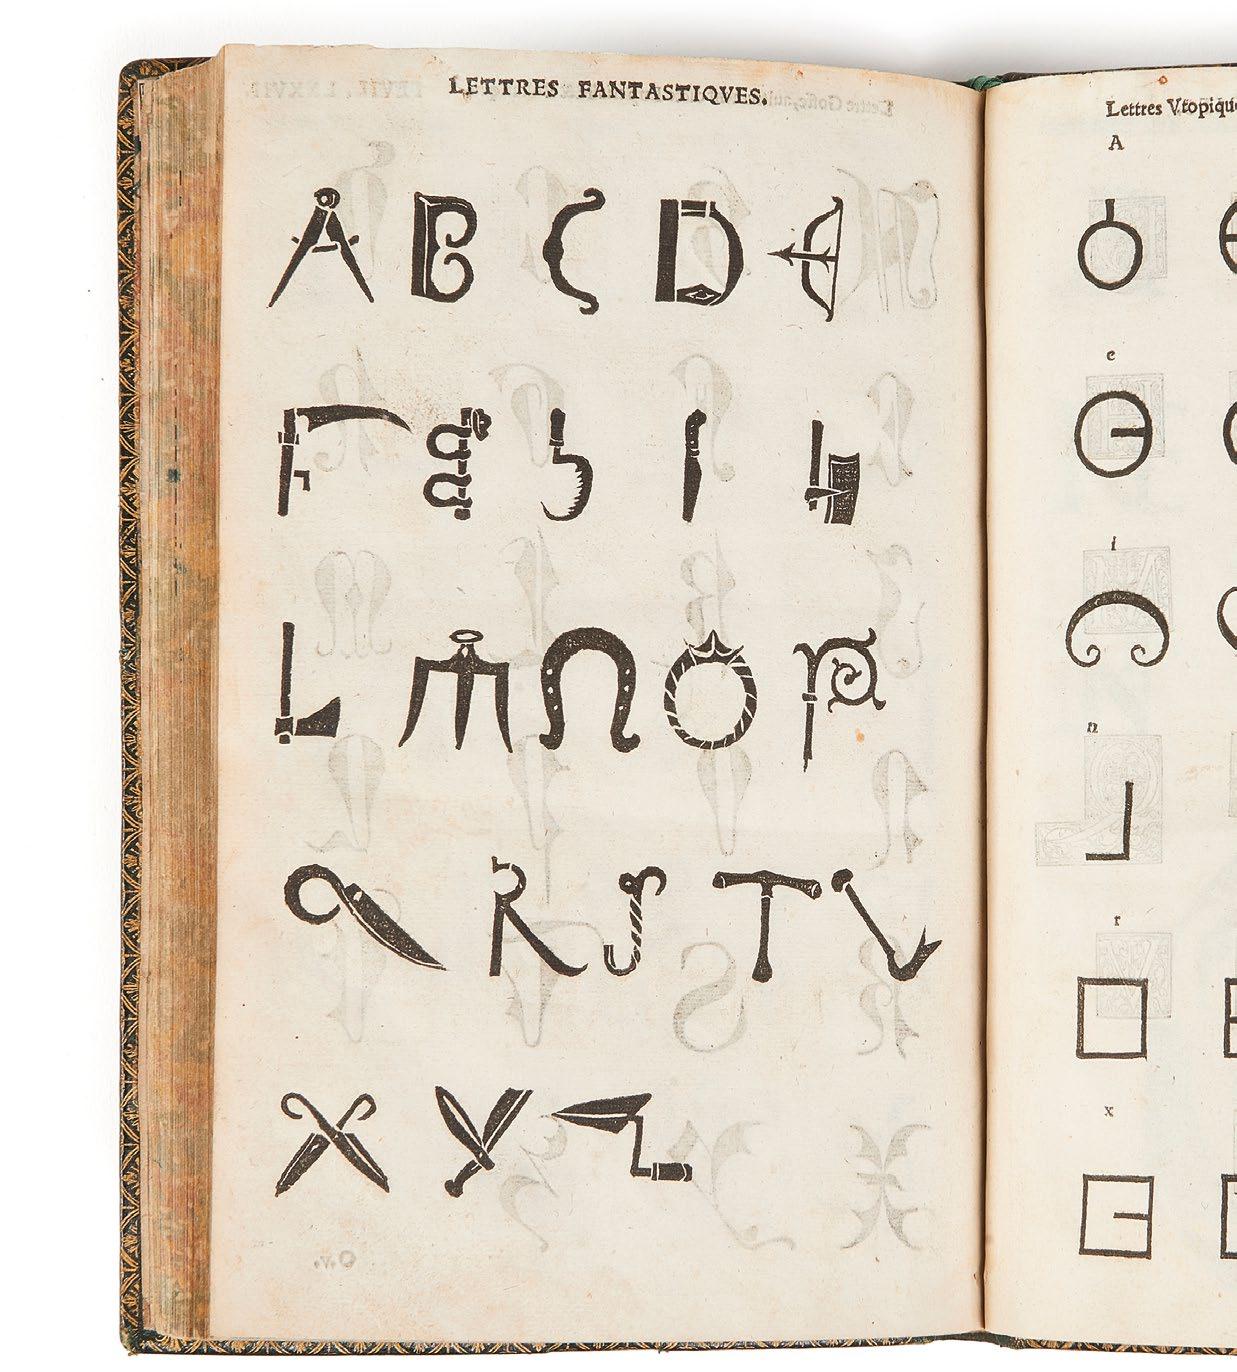 LETTRES FANTASTIQVES.
A B C D E
F G H I K
L M N O P
Q R S T V
X Y Z
Lettres Vtopiqu
A
e
i
n
r
x